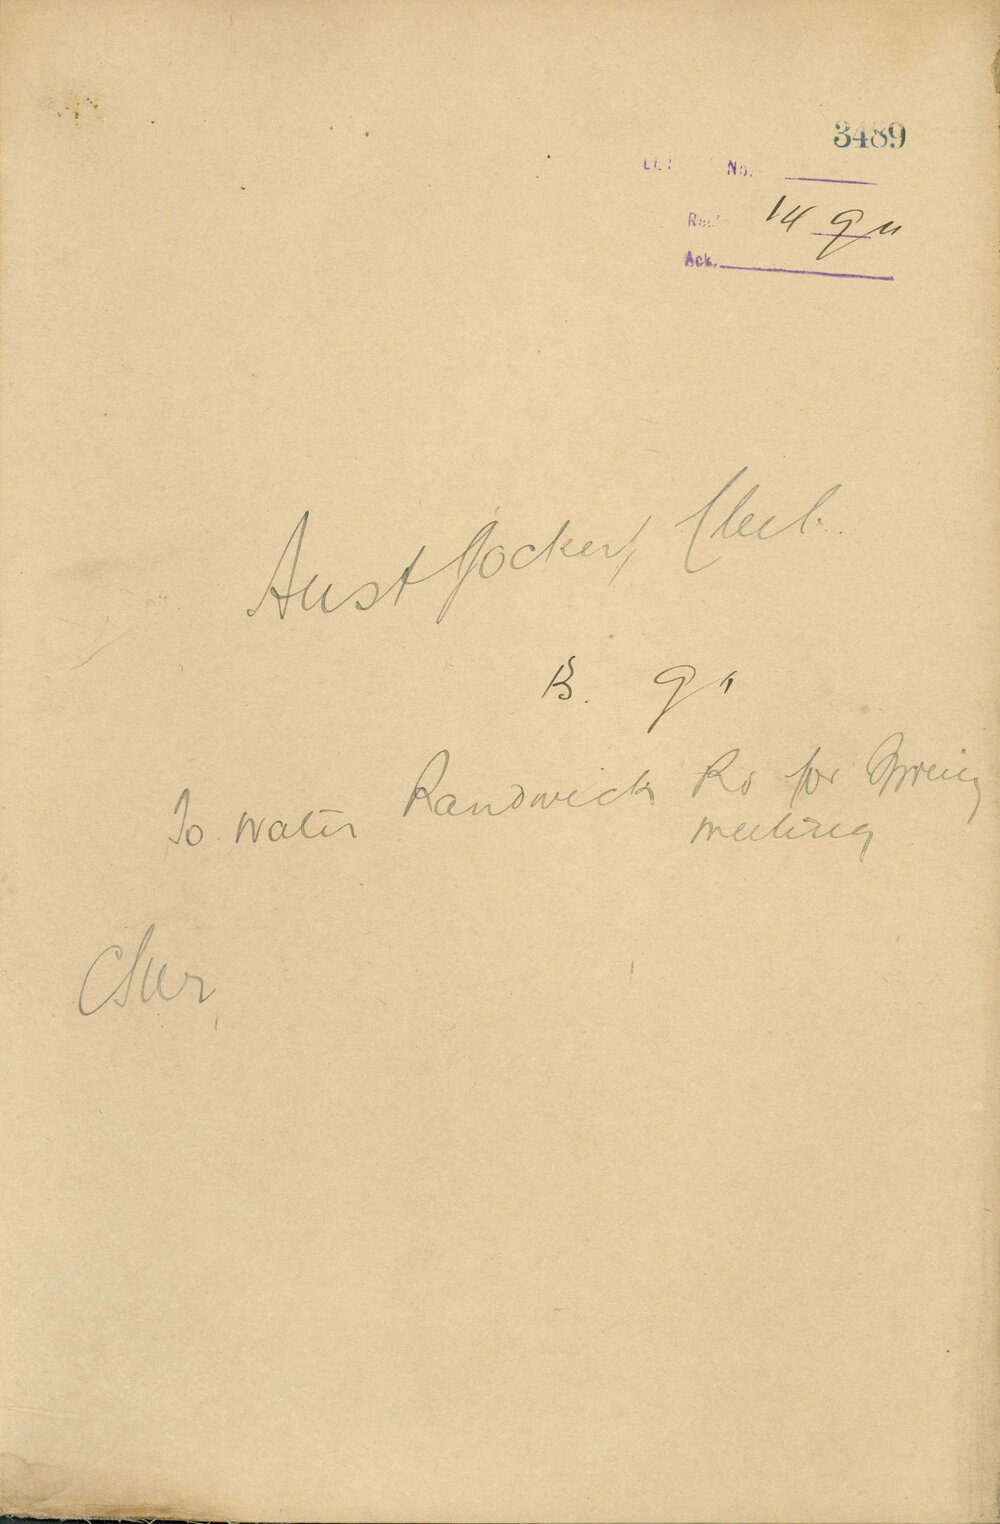 3489
No.
14 9 11
Ack.
Aust Jockey Club
13. 9 11
To water Randwick Rd for Spring
meeting